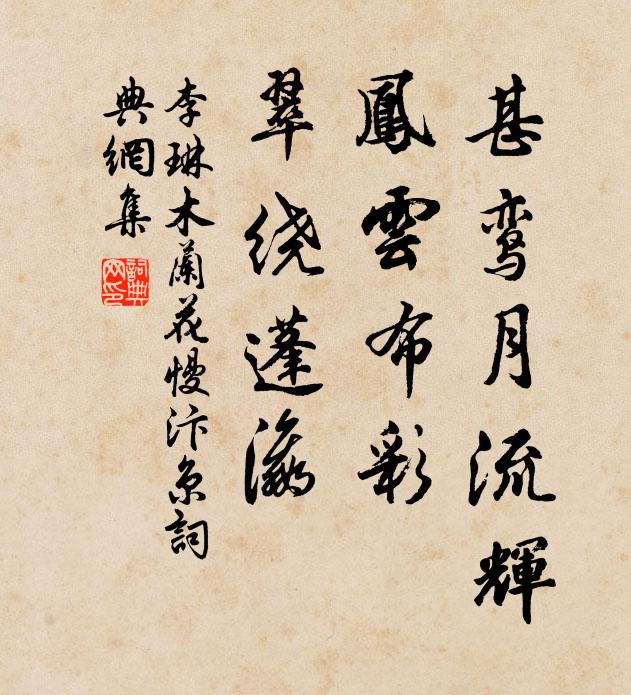 甚鸾月流輝
鳳雲布彩
翠绕蓬瀛
李琳木蘭花慢汴京詞
典網集
詞典
网印